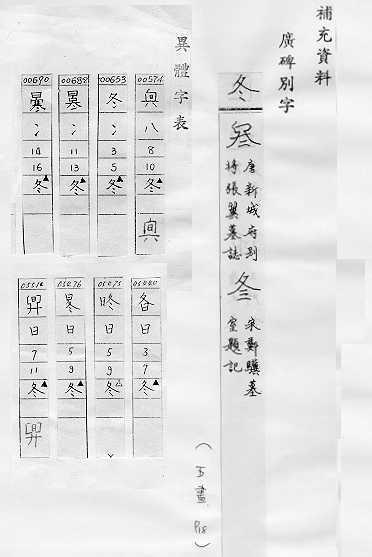 補充資料
廣碑別字
冬
唐新城府別
將張翼墓誌
冬
宋鄭驥墓
室題記
(五畫 P18)
異體字表
00574
八
8
10
冬▲
00653
冬
冫
3
5
冬▲
00688
冫
11
13
冬▲
00690
冫
14
16
冬▲
日
3
7
冬▲
05075
日
5
9
冬△
05076
日
5
9
冬▲
日
7
11
冬▲